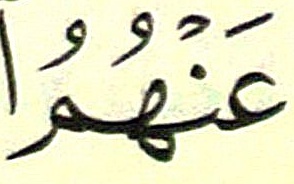 عَنْهُمُ ا